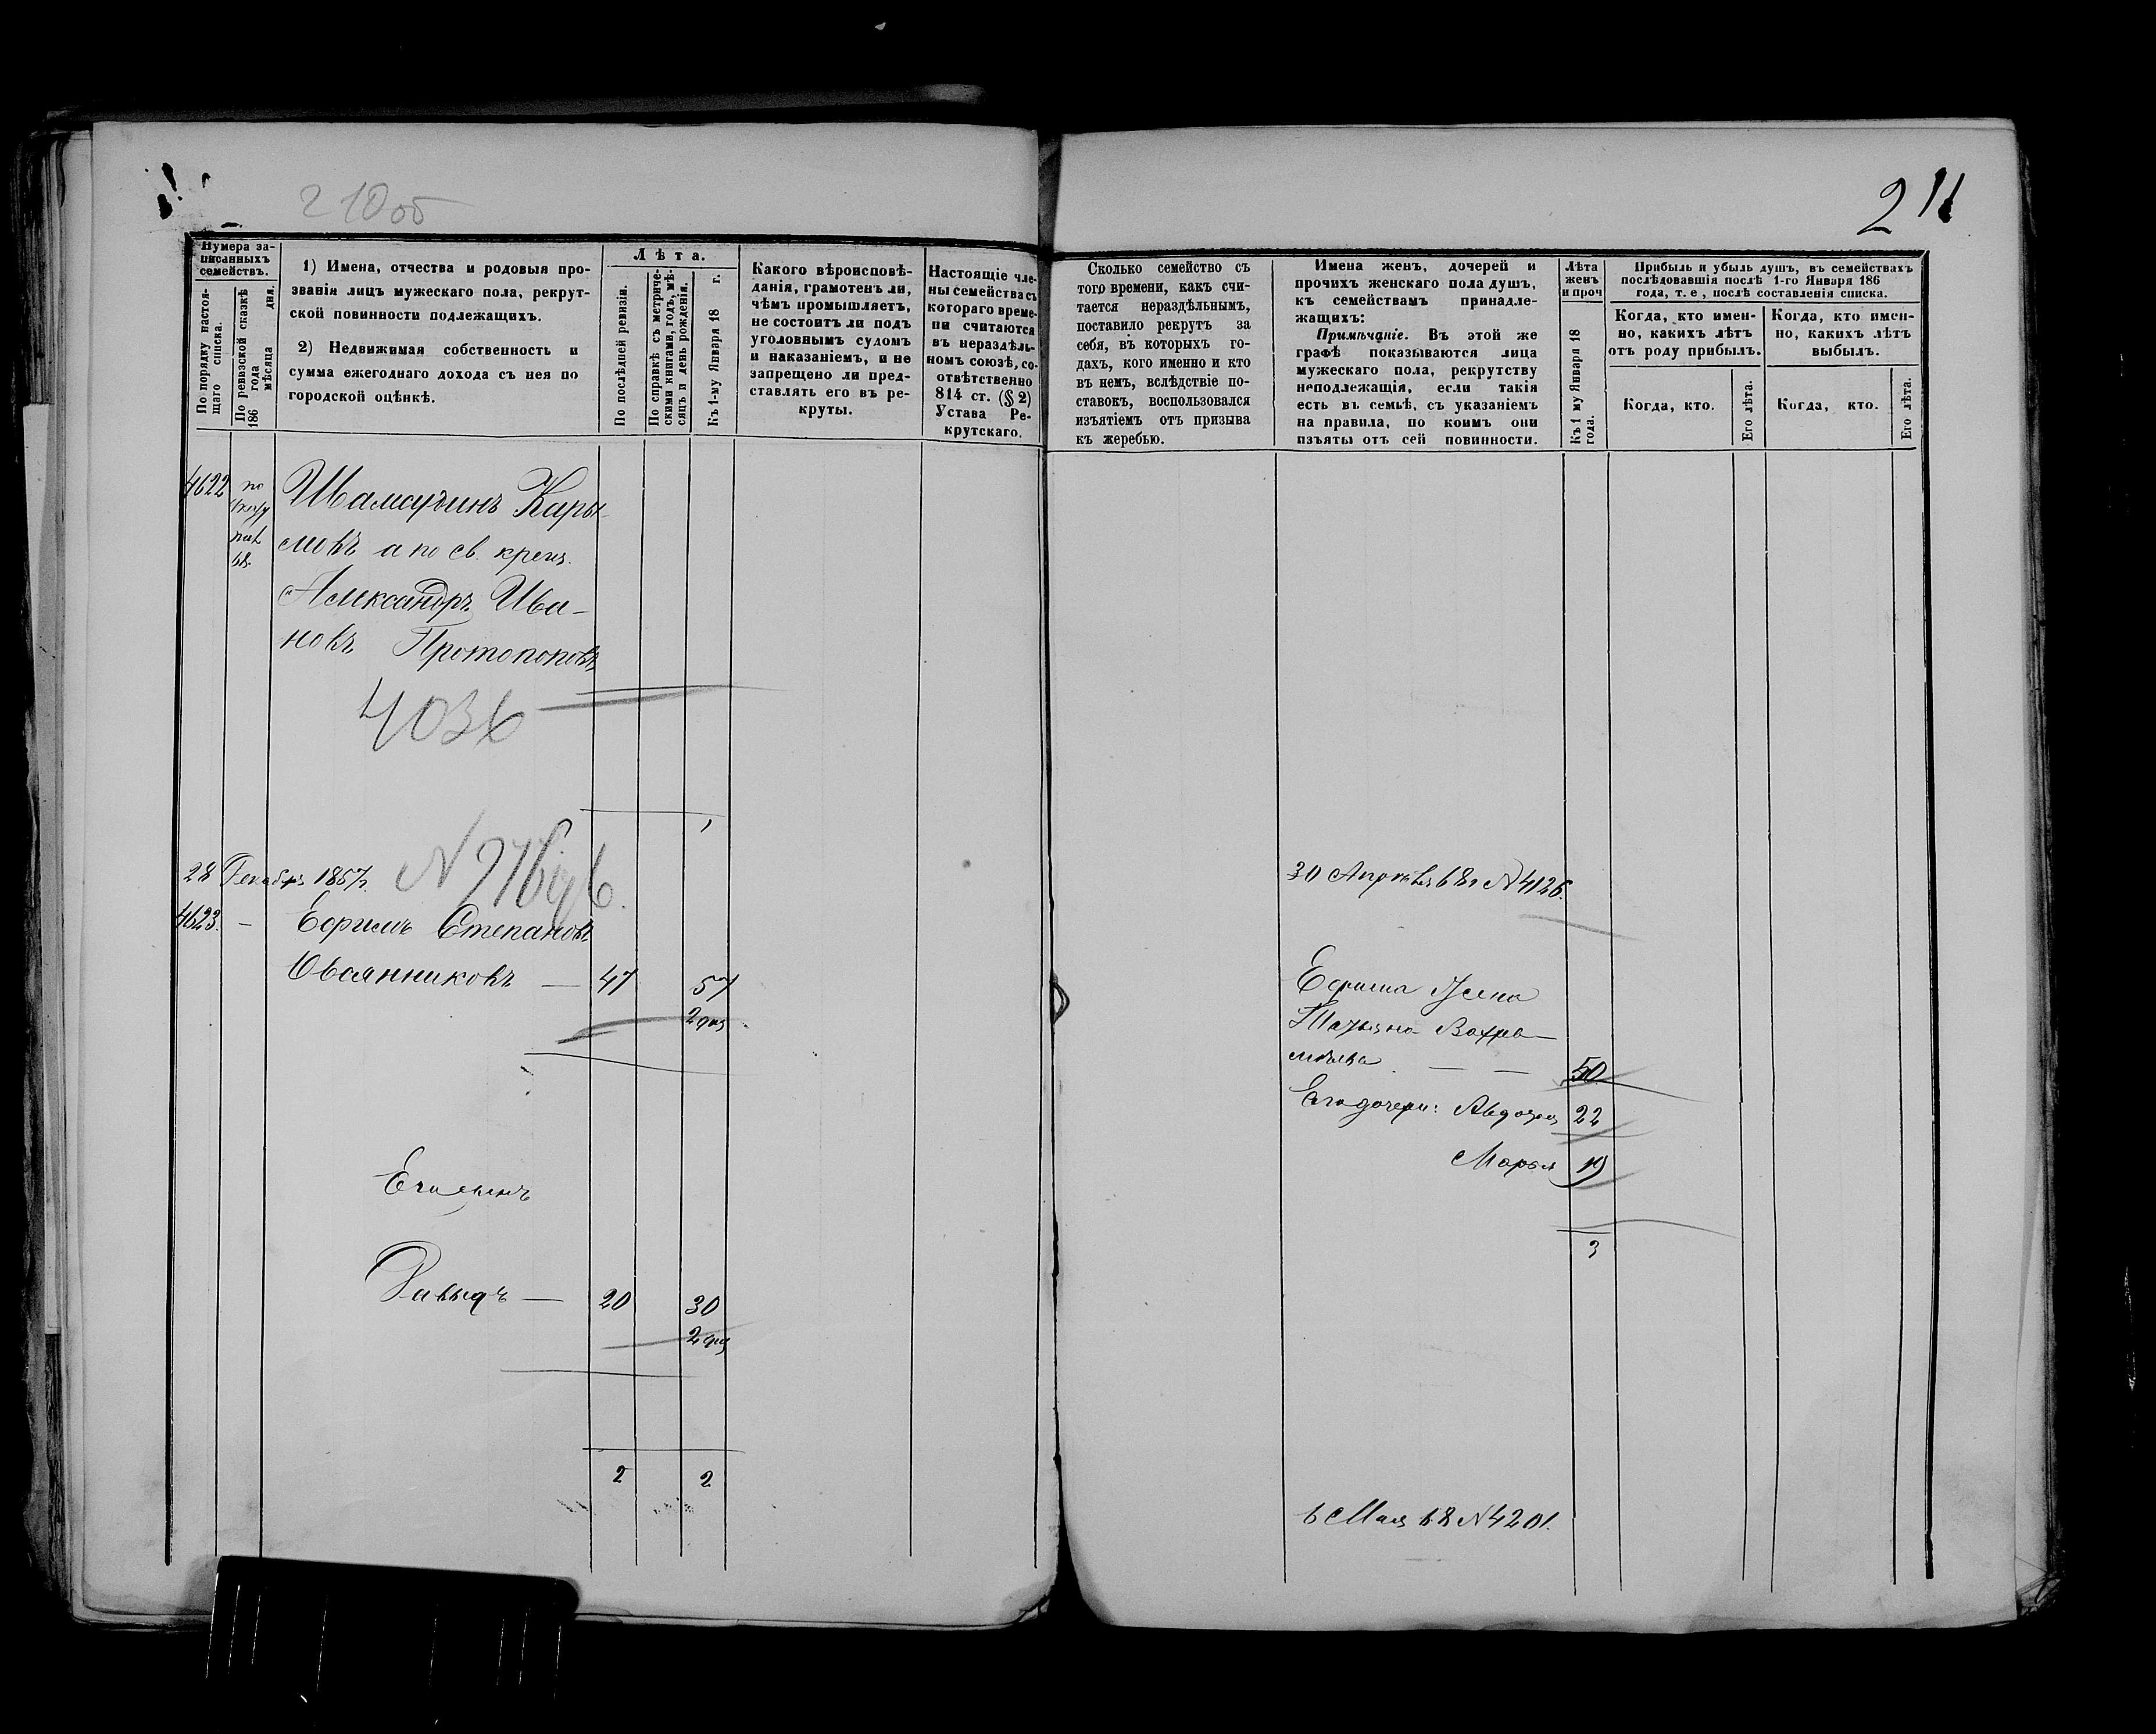 210об
211
Нумера за-
писанныхъ
семействъ.
По порядку настоя-
щаго списка.
По ревизской сказкѣ
186 года мѣсяца дня.
1) Имена, отчества и родовыя про-
званія лицъ мужескаго пола, рекрут-
ской повинности подлежащихъ.
2) Недвижимая собственность и
сумма ежегоднаго дохода съ нея по
городской оцѣнкѣ.
Лѣта.
По послѣдней ревизіи.
По справкѣ съ метриче-
скими книгами, годъ, мѣ-
сяцъ и день рожденія.
Къ 1-му Января 18 г.
Какого вѣроисповѣ-
данія, грамотенъ ли,
чѣмъ промышляетъ,
не состоитъ ли подъ
уголовнымъ судомъ
и наказаніемъ, и не
запрещено ли пред-
ставлять его въ ре-
круты.
Настоящіе чле-
ны семейства съ
котораго време-
ни считаются
въ нераздѣль-
номъ союзѣ, со-
отвѣтственно
814 ст. (§ 2)
Устава Ре-
крутскаго.
Сколько семейство съ
того времени, какъ счи-
тается нераздѣльнымъ,
поставило рекрутъ за
себя, въ которыхъ го-
дахъ, кого именно и кто
въ немъ, вслѣдствіе по-
ставокъ, воспользовался
изъятіемъ отъ призыва
къ жеребью.
Имена женъ, дочерей и
прочихъ женскаго пола душъ,
къ семействамъ принадле-
жащихъ:
Примѣчаніе. Въ этой же
графѣ показываются лица
мужескаго пола, рекрутству
неподлежащія, если такія
есть въ семьѣ, съ указаніемъ
на правила, по коимъ они
изъяты отъ сей повинности.
Лѣта
женъ
и проч
Къ 1 му Января 18
года.
Прибыль и убыль душъ, въ семействахъ
послѣдовавшія послѣ 1-го Января 186
года, т. е., послѣ составленія списка.
Когда, кто имен-
но, какихъ лѣтъ
отъ роду прибылъ.
Когда, кто имен-
но, какихъ лѣтъ
выбылъ.
Когда, кто.
Его лѣта.
Когда, кто.
Его лѣта.
4622 по
68.
Шамаудинъ Кары-
мовъ а по св. крещ.
Александръ Ива-
новъ Протопоповъ
4036
1
28 Декабр 1867г.
4623. — Ефимъ Степановъ
Овсянниковъ — 47 57
Его сынъ
Давыдъ — 20 30
2 2
30 Апрѣля 68г N 4126.
Ефима Жена
Татьяна Вахра-
мѣева — — 50
Его дочери: Авдотья 22
Марья 19
3
6 Мая 68 N 4201.